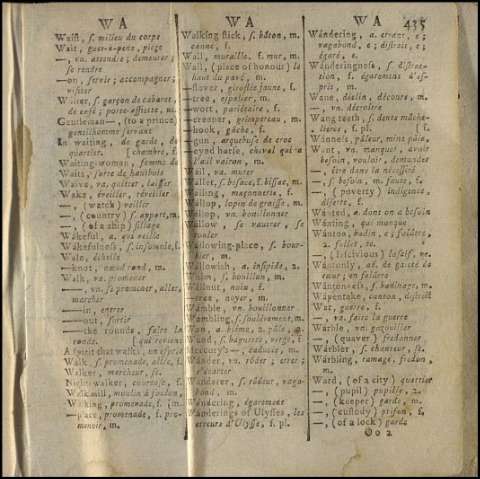 WA
WA
WA
435
Waist, s. milieu du corps
Wait, guet-à-pens, piége
—, vn. attendre; demeurer;
se rendre
—on, servir; accompagner;
visiter
Waiter, s. garçon de cabaret,
de café; porte-assiette, m.
Gentleman—, (to a prince)
gentilhomme servant
In waiting, de garde, de
quartier. [chambre, f.
Waiting-woman, femme de
Waits, sorte de hautbois
Waive, va. quitter, laisser
Wake, éveiller, réveiller
—, (watch) veiller
—, (country) s. apport, m.
—, (of a ship) sillage
Wakeful, a. qui veille
Wakefulness, s. insomnie, f.
Wale, échelle
—knot, nœud rond, m.
Walk, va. promener
—, vn. se promener, aller,
marcher
—in, entrer
—out, sortir
—the rounds, faire la
ronde. [qui revient
A spirit that walks, un esprit
Walk, promenade, allée, f.
Walker, marcheur, se.
Night-walker, coureuse, f.
Walk-mill, moulin à foulon,
Walking, promenade, f. [m.
—place, promenade, f. pro-
menoir, m.
Walking stick, s. bâton, m.
canne, f.
Wall, muraille, f. mur, m.
Wall, (place of honour) le
haut du pavé, m.
—flower, giroflée jaune, f.
—tree, espalier, m.
—wort, pariétaire, f.
—creeper, grimpereau, m.
—hook, gâche, f.
—gun, arquebuse de croc
—eyed horse, cheval qui a
l'œil vairon, m.
Wall, va. murer
Wallet, s. besace, f. bissac, m.
Walling, maçonnerie, f.
Wallop, lopin de graisse, m.
Wallop, vn. bouillonner
Wallow, se vautrer, se
rouler
Wallowing-place, s. bour-
bier, m.
Wallowish, a. insipide, 2.
Walm, s. bouillon, m.
Walnut, noix, f.
—tree, noyer, m.
Wamble, vn. bouillonner
Wambling, s. soulèvement, m.
Wan, a. blême, 2. pâle, 2.
Wand, s. baguette, verge, f.
Mercury's—, caducée, m.
Wander, vn. rôder; errer;
s'écarter
Wanderer, s. rôdeur, vaga-
bond, m.
Wandering, égarement
Wanderings of Ulysses, les
erreurs d'Ulysse, f. pl.
Wandering, a. errant, e;
vagabond, e; distrait, e;
égaré, e.
Wanderingness, s. distrac-
tion, f. égarement d'es-
prit, m.
Wane, déclin, décours, m.
—, vn. décroître
Wang teeth, s. dents mâche-
lières, f. pl. [f.
Wanness, pâleur, mine pâle,
Want, vn. manquer, avoir
besoin, vouloir, demander
—, être dans la nécessité
—, s. besoin, m. faute, f.
—, (poverty) indigence,
disette, f.
Wanted, a. dont on a besoin
Wanting, qui manque
Wanton, badin, e; folâtre,
2. follet, te.
—, (lascivious) lascif, ve.
Wantonly, ad. de gaieté de
cœur; en folâtre
Wantonness, s. badinage, m.
Wapentake, canton, district
War, guerre, f.
—, vn. faire la guerre
Warble, vn. gazouiller
—, (quaver) fredonner
Warbler, s. chanteur, se.
Warbling, ramage, fredon,
m.
Ward, (of a city) quartier
—, (pupil) pupille, 2.
—, (keeper) garde, m.
—, (custody) prison, f.
—, (of a lock) garde
Oo2